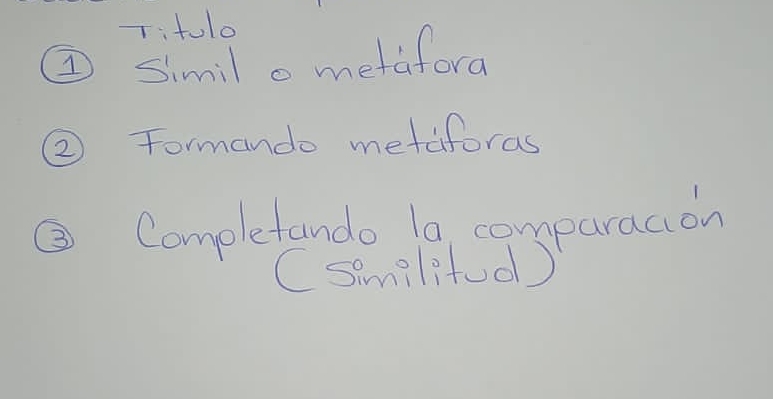 Titulo
① Símil o metáfora
② Formando metáforas
③ Completando la comparación
(Similitud)